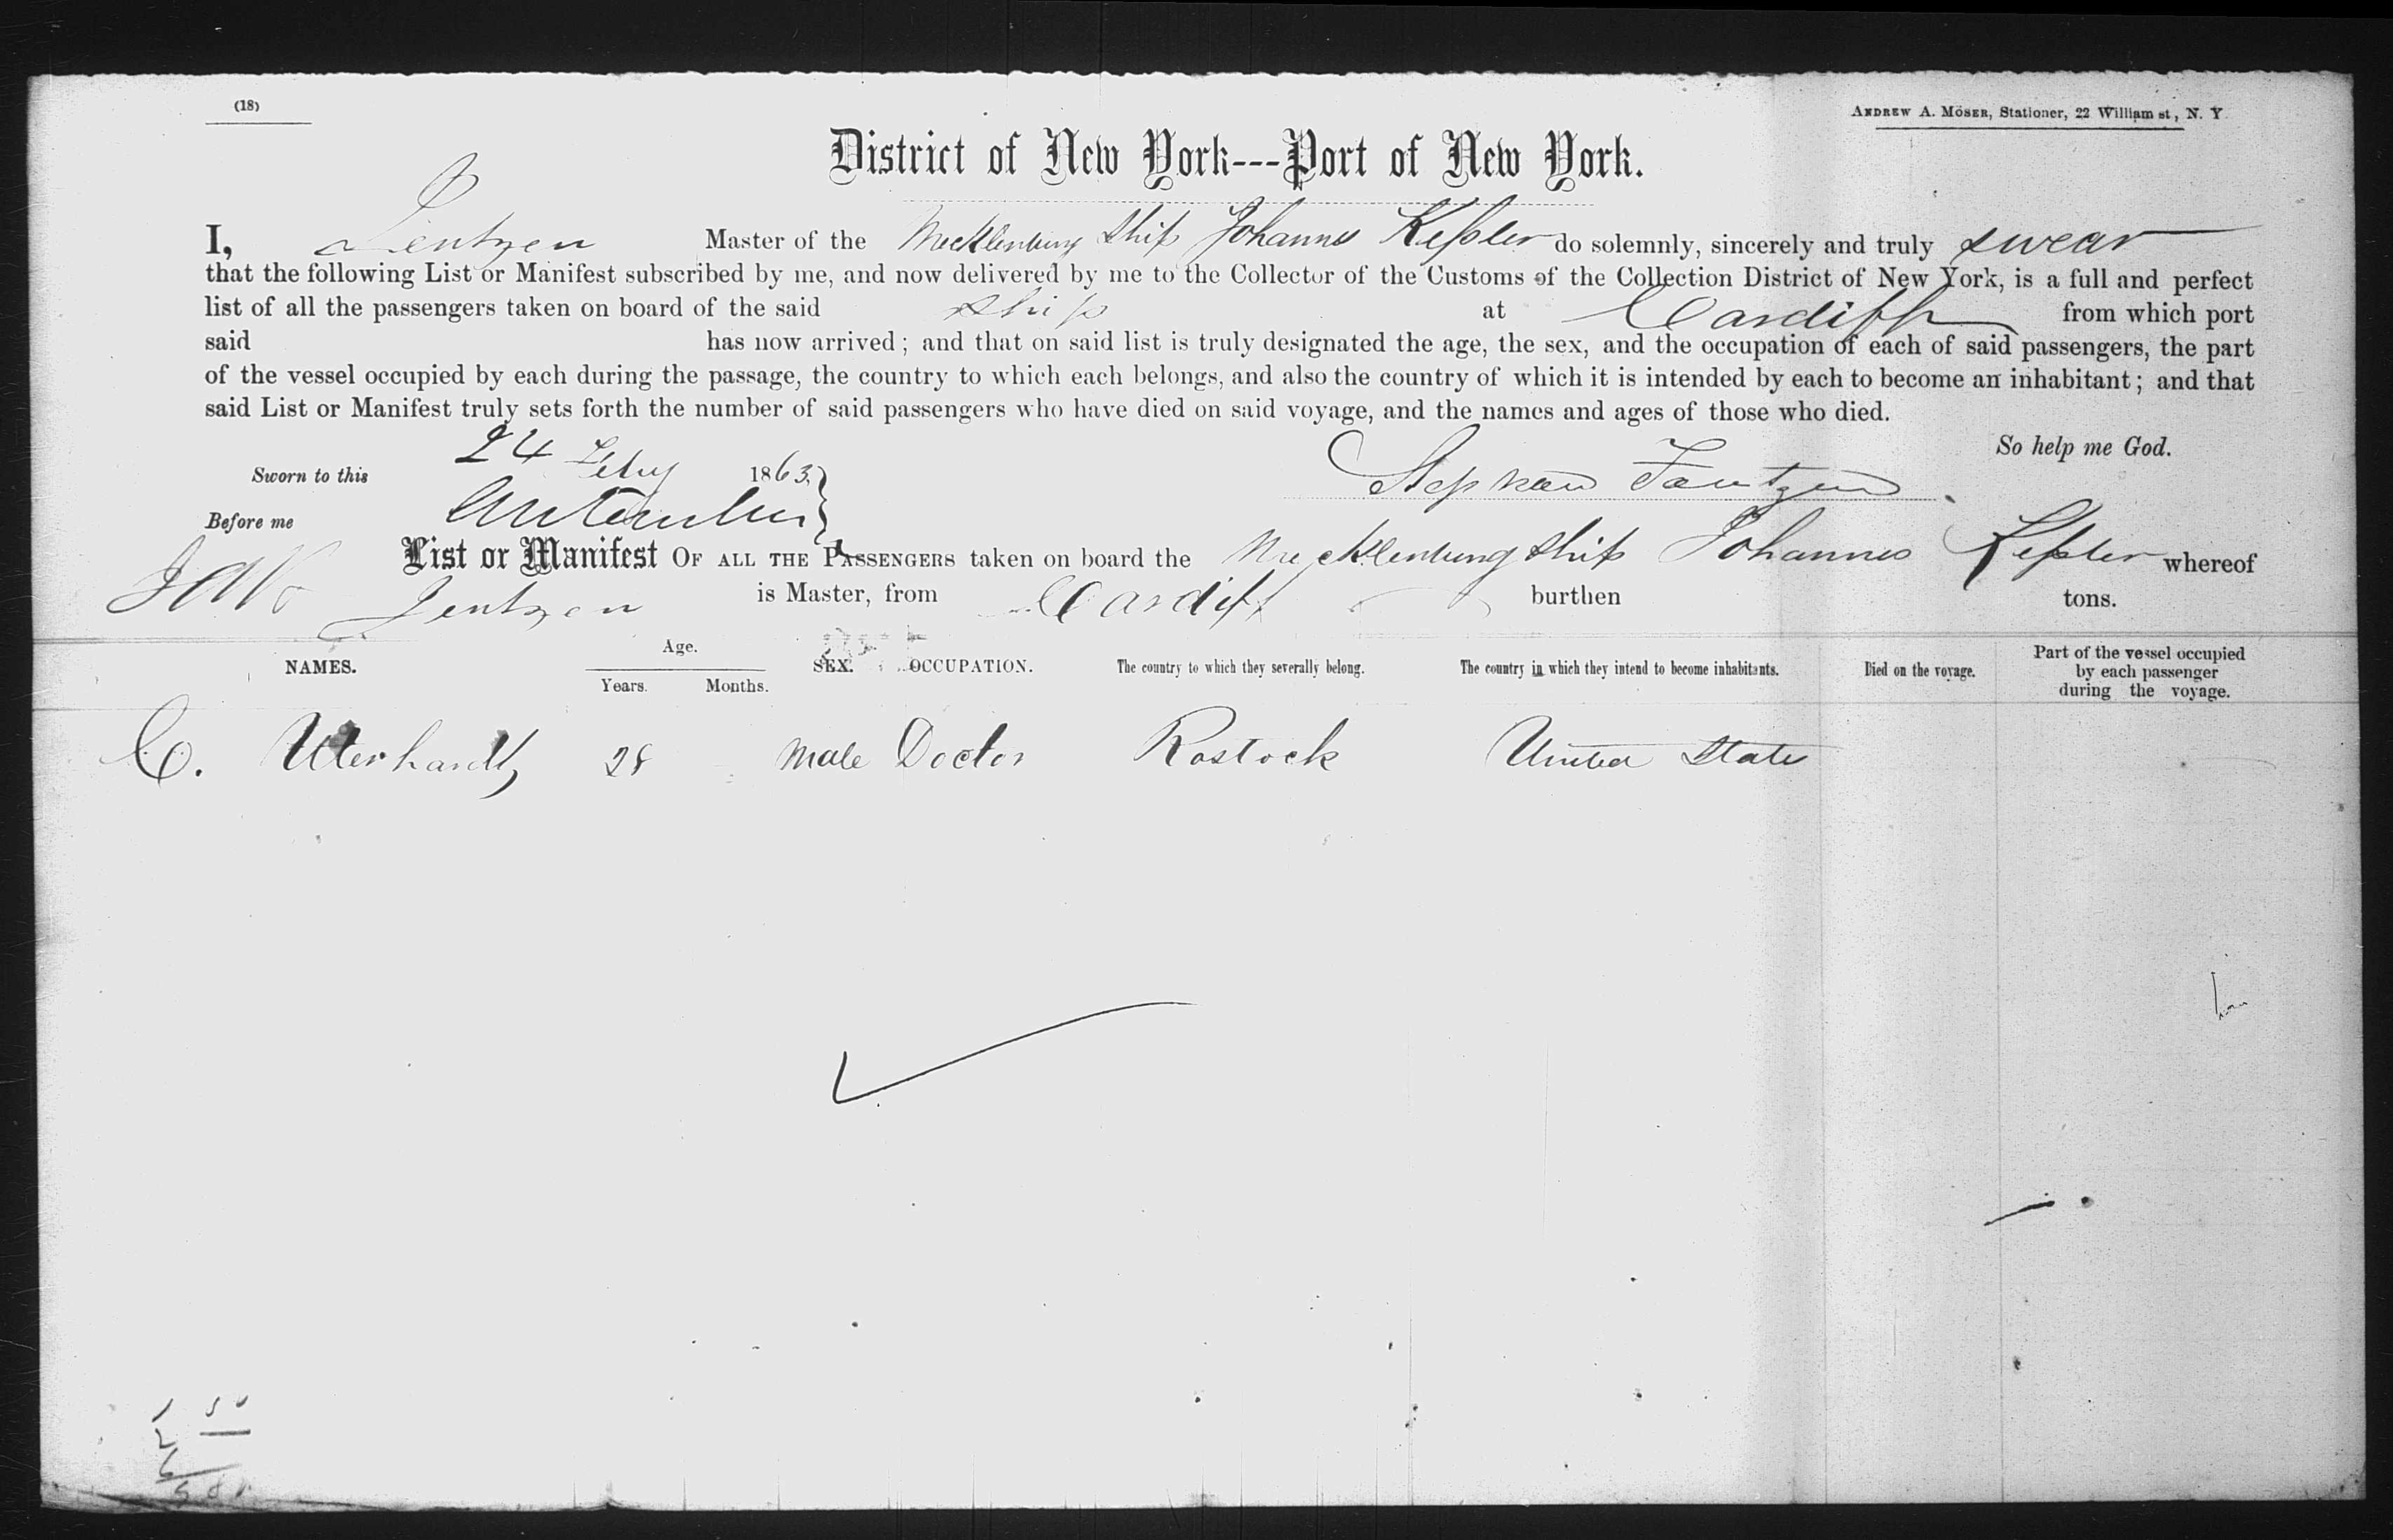 (18)
ANDREW A. MÖSER, Stationer, 22 William st, N. Y.
District of New York---Port of New York.
I, Jentzen Master of the Mecklenburg Ship Johannes Keßler do solemnly, sincerely and truly swear
that the following List or Manifest subscribed by me, and now delivered by me to the Collector of the Customs of the Collection District of New York, is a full and perfect
list of all the passengers taken on board of the said ship at Cardiff from which port
said has now arrived; and that on said list is truly designated the age, the sex, and the occupation of each of said passengers, the part
of the vessel occupied by each during the passage, the country to which each belongs, and also the country of which it is intended by each to become an inhabitant; and that
said List or Manifest truly sets forth the number of said passengers who have died on said voyage, and the names and ages of those who died.
So help me God.
Sworn to this 24 Feby 1863
Stephan
Before me
List or Manifest OF ALL THE PASSENGERS taken on board the Mecklenburg Ship Johannes Keßler whereof
Jentzen is Master, from Cardiff burthen tons.
NAMES. Age. Years. Months. SEX. OCCUPATION. The country to which they severally belong. The country in which they intend to become inhabitants. Died on the voyage. Part of the vessel occupied by each passenger during the voyage.
C. Uterhardt 28 Male Doctor Rostock United State